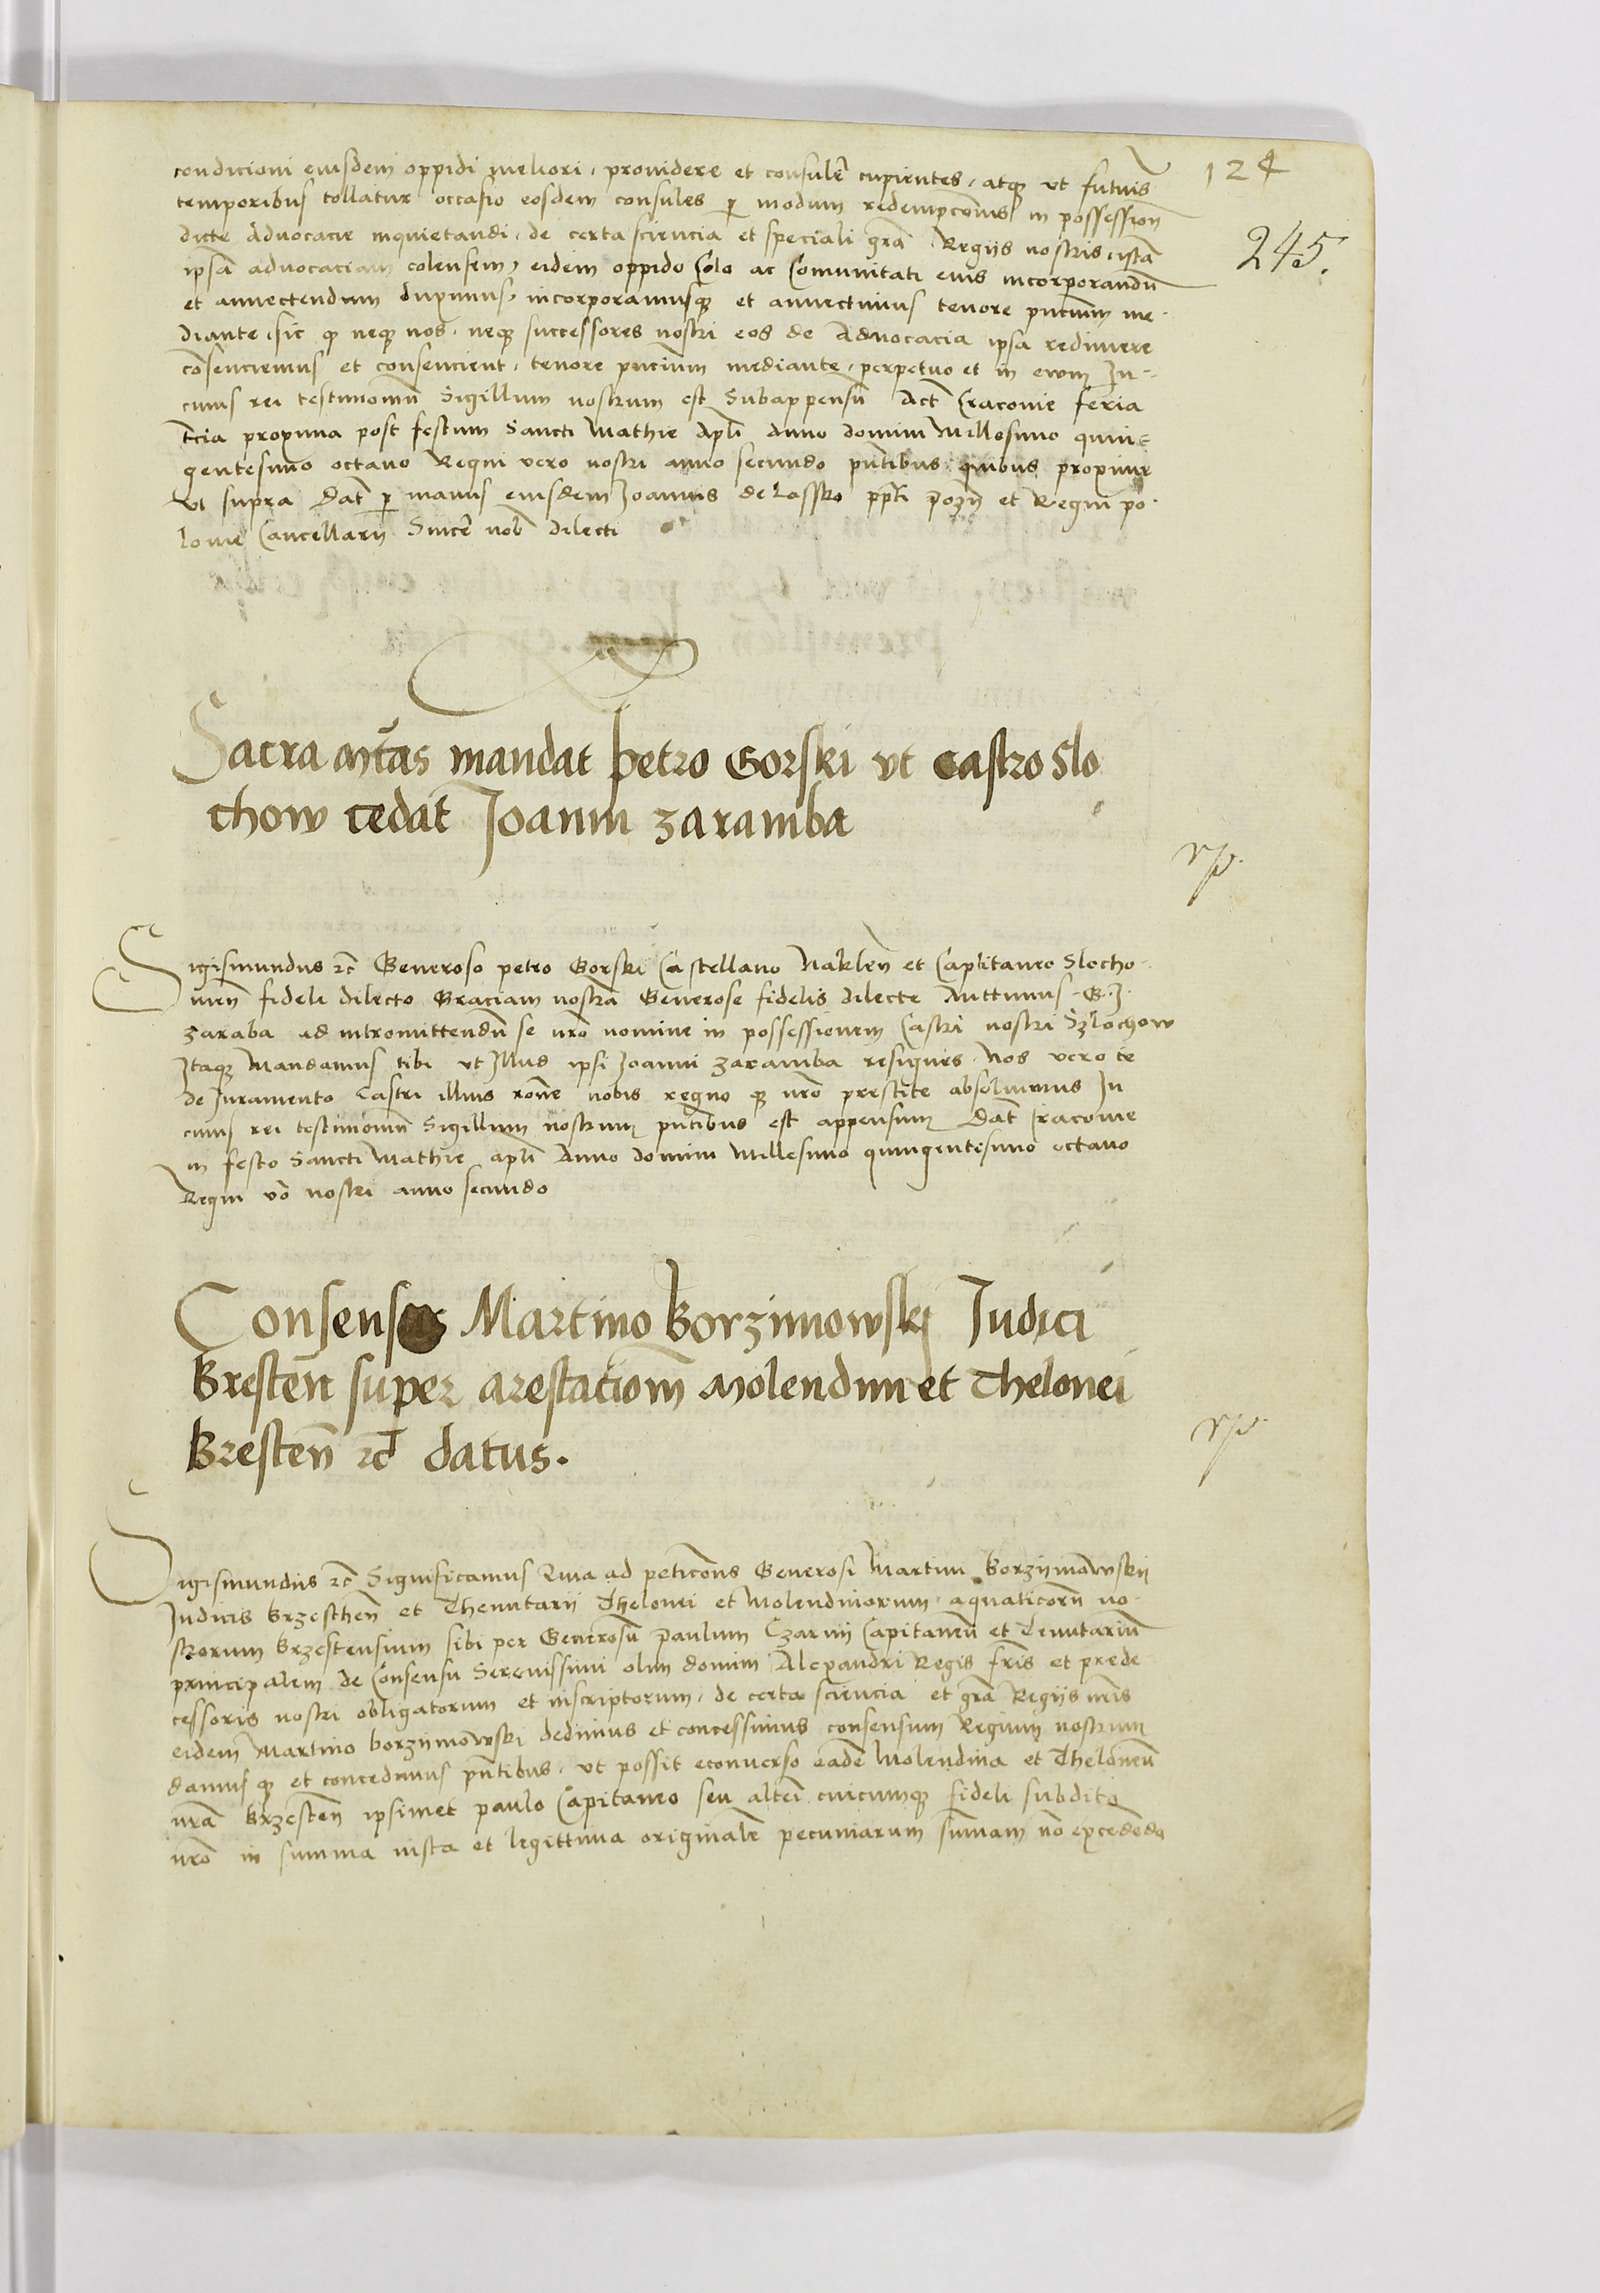 124
245.
condicioni eiusdem oppidi meliori, providere et consulē cupientes, atq̄ ut futuris
temporibus tollatur occasio eosdem consules p̱ modum redempcōnis in possessionē
dicte Advocacie inquietandi, de certa sciencia et speciali grā Regijs nostris, istā
ipsā advocaciam colensem, eidem oppido Colo ac Comunitati eius incorporandū
et annectendum duximus, incorporamusq̄ et annectimus tenore pn̄cium me-
diante, sic q̄ neq̄ nos, neq̄ successores nostri eos de Advocacia ipsa redimere
cōsenciemus et consencient, tenore pn̄cium mediante, perpetuo et in evum In-
cuius rei testimoniū Sigillum nostrum est Subappensū Act̄ Cracovie feria
tc̄ia proxima post festum Sancti Mathie Apl̄i Anno domini Millesimo quin-
gentesimo octavo Regni vero nostri anno secundo pn̄tibus quibus proxime
ut supra Dat̄ p̱ manus eiusdem Joannis de Lassko pp̄ti Pozn̄ et Regni po-
lonie Cancellarij Sincē nob̄ dilecti
Sacra Mt̄as mandat petro Gorski ut castro Slo
chow cedat Joanni Zaramba
rp.
Sigismundus rc̄ Generoso petro Gorski Castellano Naklen̄ et Capitaneo Slocho-
vien̄ fideli dilecto Graciam nostrā Generose fidelis dilecte Mittimus G. J.
Zaraba ad intromittendū se nr̄o nomine in possessionem Castri nostri Szlochow
Itaq̄ Mandamus tibi ut Illud ipsi Joanni Zaramba resignes. Nos vero te
de Juramento Castri illius rōne nobis regno q̄ nr̄o prestite absolvimus In
cuius rei testimoniū Sigillum nostrum pn̄tibus est appensum Dat̄ Cracovie
in festo Sancti Mathie apl̄i Anno domini Millesimo quingentesimo octavo
Regni vō nostri anno secundo
Consensus Martino Borzimowski Judici
Bresten̄ super arestacionē Molendini et Thelonei
Bresten̄ rc̄ datus.
rp.
Sigismundus rc̄ Significamus Quia ad peticōnes Generosi Martini Borzijmowskij
Judicis Brzesthen̄ et Thenutarij Thelonei et Molendinorum aquaticorū no-
strorum Brzestensium sibi per Generosū Paulum Czarnij Capitaneū et Tenutariū
principalem de Consensu Serenissimi olim domini Alexandri Regis fr̄is et prede-
cessoris nostri obligatorum et inscriptorum, de certa sciencia et grā Regijs nr̄is
eidem Martino Borzijmowski dedimus et concessimus consensum Regium nostrum
damus q̄ et concedimus pn̄tibus, ut possit econverso eadē Molendina et Theloneū
nr̄ā Brzesten̄ ipsimet paulo Capitaneo seu altei cuicumq̄ fideli subdito
nr̄o in summa iusta et legittima originalē pecuniarum sum̄am nō excedēdo